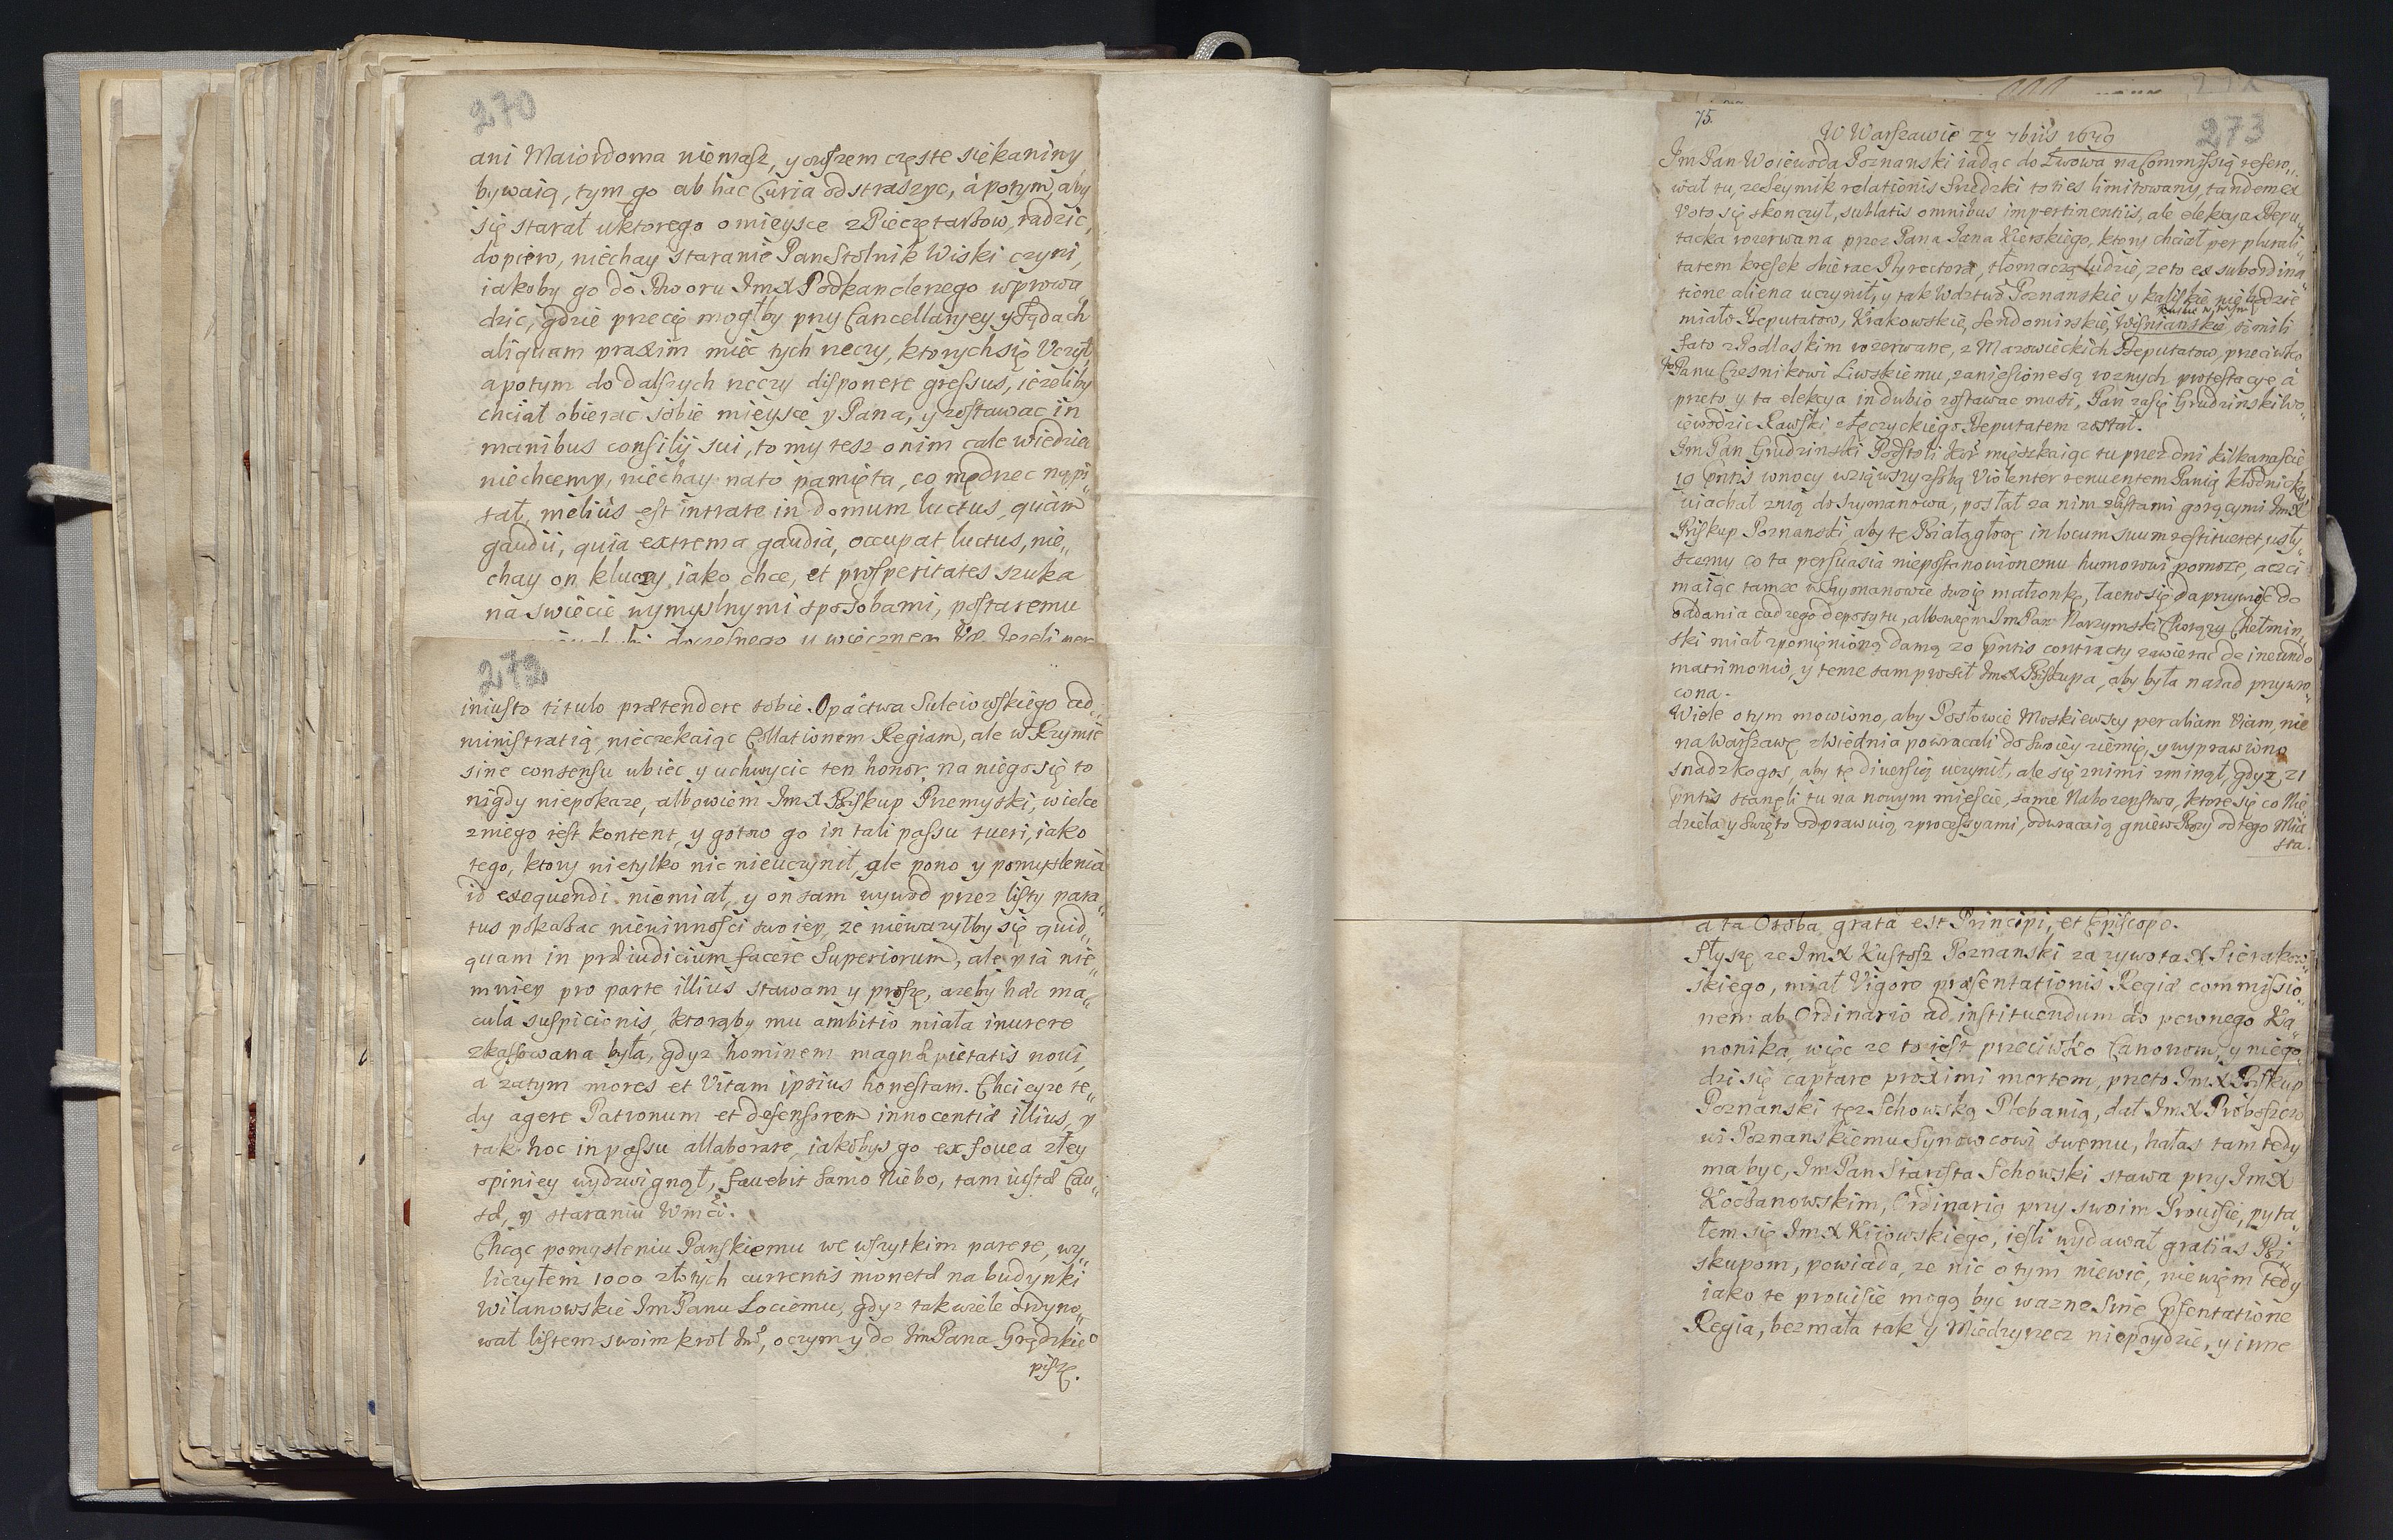 270
ani Maiordoma niemasz, y owszem częste siekaniny
bywaią, tym go ab hac Curia odstraszyc, à potym, aby
się starał uktorego o mieysce z Pieczętarzow, radzic,
dopiero, niechay staranie Pan Stolnik Wiski czyni,
iakoby go do Dworu JmX Podkanclerzego wprowa„
dzic, gdzie przecię mogłby przy Cancellaryey y Sądach
aliquam praxim miec tych rzeczy, ktorych się Uczył,
a potym do dalszych rzeczy disponere gressus, ieżeliby
chciał obierac sobie mieysce y Pana, y zostawac in
manibus consilij sui, to my tesz onim cale wiedziec
niechcemy, niechay nato pamięta, co mędrzec nappi„
sał, melius est intrare in domum luctus, quàm
gaudii, quia extrema gaudia, occupat luctus, nie„
chay on kluczy iako chce, et prosperitates szuka
na swiecie wymyslnymi sposobami, postaremu
doczesnego u wiecznego Jezeli
272
iniusto titulo prætendere sobie Opactwa Suleiowskiego ad„
ministratią, nieczekaiąc Collationem Regiam, ale w Rzymie
sine consensu ubiec y uchwycic ten honor, na niego się to
nigdy niepokaze, albowiem JmX Biskup Przemyski, wielce
zniego iest kontent, y gotow go in tali passu tueri, iako
tego, ktory nietylko nic nieuczynił, ale pono y pomyslenia
id exequendi niemiał, y on sam wywod przez listy para„
tus pokazac niewinności swoiey, ze niewazyłby się quid„
quam in præiudicium facere Superiorum, ale y ia nie„
mniey pro parte illius stawam y proszę, azeby hæc ma„
cula suspicionis, ktorąby mu ambitio miała inurere
zkassowana była, gdyz hominem magnæ pietatis novi,
a zatym mores et Vitam ipsius honestam. Chcieyze te„
dy agere Patronum et defensorem innocentiæ illius, y
tak hoc in passu allaborare, iakobys go ex fouea złey
opiniey wydzwignął, fauebit samo Niebo, tam iustæ Cau„
sæ, y staraniu Wmci.
Chcąc pomysleniu Panskiemu we wszytkim parere, wy„
liczyłem 1000 złotych currentis monetæ na budynki
Wilanowskie Jm Panu Lociemu, gdyz tak wiele ordyno„
wał listem swoim krol Jmć, o czym y do Jm Pana Grądzkie°
piszę.
75.
273
W Warszawie 22 7bris 1679
Jm Pan Woiewoda Poznanski iadąc do Lwowa na Commissią refero„
wał tu, ze Seymik relationis Sredzki toties limitowany, tandem ex
Voto się skonczył, sublatis omnibus impertinentiis, ale elekcya Depu„
tacka rozerwana przez Pana Jana Kierskiego, ktory chciał per plurali„
tatem kresek obierac Dyrectora, tłomaczą ludzie, ze to ex subordina„
tione aliena uczynił, y tak Wdztwo Poznanskie y kaliskie nie będzie
miało Deputatow, Krakowskie, Sendomirskie, Wisnianskie, simili
fato z Podlaskim rozerwane, z Mazowieckich Deputatow, przeciwko
Panu Czesnikowi Liwskiemu, zaniesione są roznych protestacye à
przeto y ta elekcya in dubio zostawac musi, Pan zasię Grudzinski Wo„
iewodzic Rawski z Łęczyckiego Deputatem został.
Jm Pan Grudzinski Podstoli Kor mieszkaiąc tu przez dni kilkanascie
19 pntis wnocy wziąwszy zsobą Violenter renuentem Panią kłodnicką
uiachał znią do Szymanowa, posłał za nim zlistami gorącymi JmX
Biskup Poznanski, aby tę Białągłowę in locum suum restitueret, usły„
szemy co ta persuasia niepostanowionemu humorowi pomoze, a ze ci
maiąc tamze w Szymanowie swoię małzonkę, łacno się da przywiesc do
oddania cudzego depozytu, albowiem Jm Pan Narzymski Chorązy Chełmin„
ski miał zpomięnioną damą 20 pntis contracty zawierac de ineundo
matrimonio, y tenze sam prosił JmX Biskupa, aby była nazad przywro„
cona.
Wiele o tym mowiono, aby Posłowie Moskiewscy per aliam Viam, nie
na Warszawę, z Wiednia powracali do swoiey ziemie, y wyprawiono
snadz kogos, aby tę diversią uczynił, ale się znimi zminął, gdyz 21
pntis stanęli tu na nowym miescie, same Nabozenstwa, ktore się co Nie„
dziela y Swięto odprawuią z processyami, odwracaią gniew Bozy od tego Mia„
sta.
a ta Osoba grata est Principi, et Episcopo.
Słyszę ze JmX Kustosz Poznanski za zywota X Sierakow„
skiego, miał Vigore præsentationis Regiæ commissio„
nem ab Ordinario ad instituendum do pewnego Ka„
nonika, więc ze to iest przeciwko Canonom, y niego„
dzi się captare proximi mortem, przeto JmX Biskup
Poznanski tęz Schowską Plebanią, dał JmX Proboszczo„
wi Poznanskiemu Synowcowi swemu, hałas tam tedy
ma byc, Jm Pan Starosta Schowski stawa przy JmX
Kochanowskim, Ordinario przy swoim Provisie, pyta„
łem się JmX Kiiowskiego, iesli wydawał gratias Bi„
skupom, powiada, ze nic o tym niewie, niewiem tedy
iako te provisie mogą byc wazne Sine Præsentatione
Regia, bez mała tak y Miedzyrzecz niepoydzie, y inne